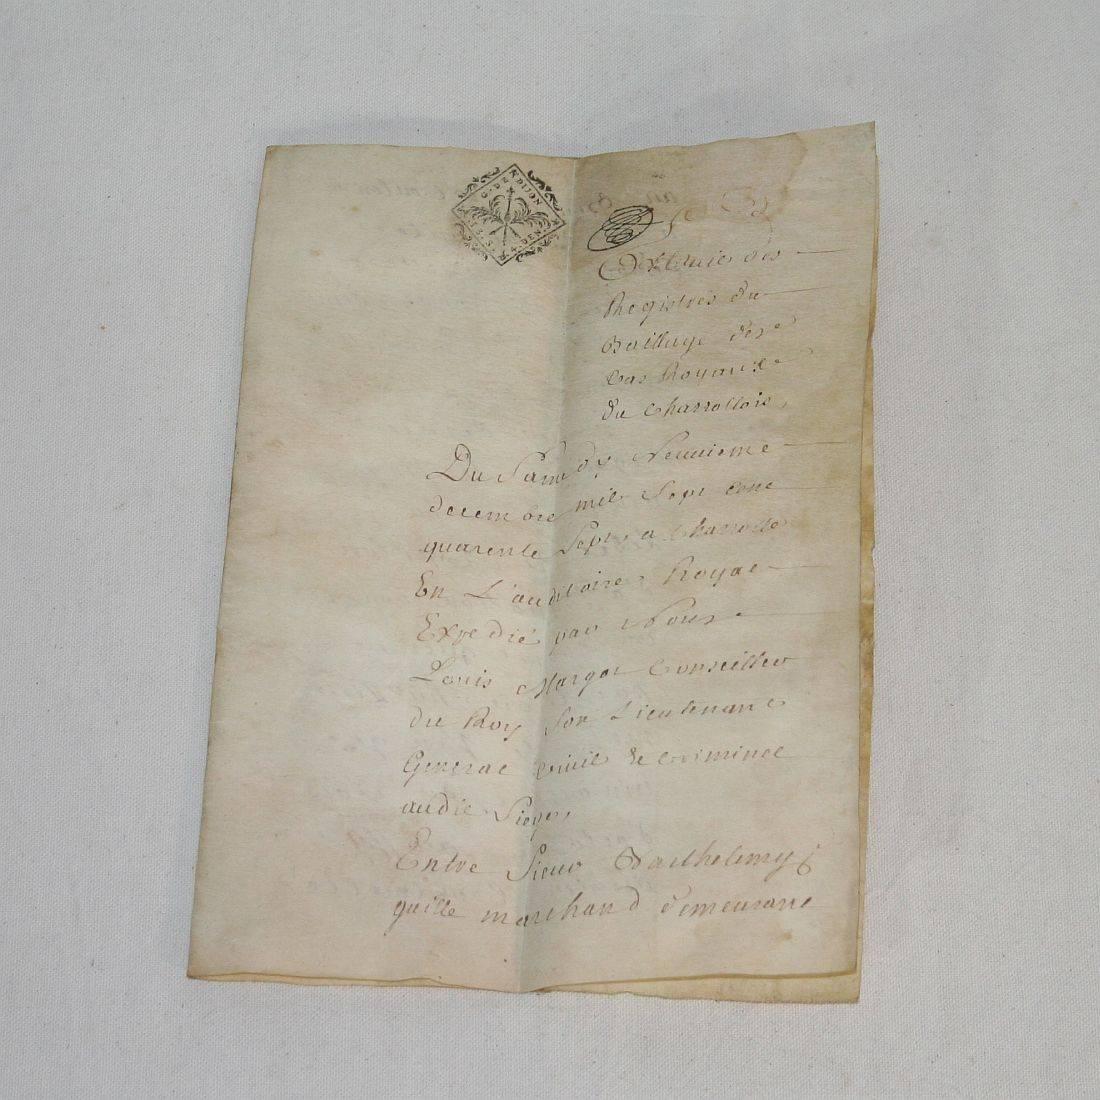 G. DE DIJON
4. DEN.
Extrait des
Registres du
Bailliage des
Cas Royaux
du Charrollois,
Du Samedy Neuuieme
decembre mil Sept Cent
quarente Sept a Charrolle
En L'auditoire Royal
Expedié par Nous
Louis Margot Conseiller
du Roy Son Lieutenant
General Ciuil & Criminel
audit Siege,
Entre Sieur Barthelemy
quille marchand demeurant